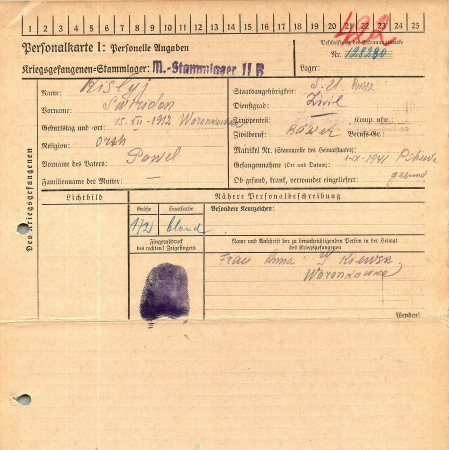 1 2 3 4 5 6 7 8 9 10 11 12 13 14 15 16 17 18 19 20 21 22 23 24 25
422
Personalkarte I: Personelle Angaben
Kriegsgefangenen-Stammlager: M.-Stammlager II B
Nr. 128280
Lager:
Des Kriegsgefangenen
Name: Kislyj
Vorname: Swiridon
Geburtstag und -ort: 15. VII. 1912 Woronkowka
Religion: orth
Vorname des Vaters: Pawel
Familienname der Mutter: —
Staatsangehörigkeit: S.U.
Dienstgrad: Zivil
Truppenteil: Komp. usw.:
Zivilberuf: Bauer Berufs-Gr.:
Matrikel Nr. (Stammrolle des Heimatstaates):
Gefangennahme (Ort und Datum): 1-IX-1941
Ob gesund, krank, verwundet eingeliefert: gesund
Lichtbild
Nähere Personalbeschreibung
Größe Haarfarbe Besondere Kennzeichen:
1/72 blond
Fingerabdruck
des rechten! Zeigefingers
Name und Anschrift der zu benachrichtigenden Person in der Heimat
des Kriegsgefangenen
Frau Anna
Woronkowka
Wenden!